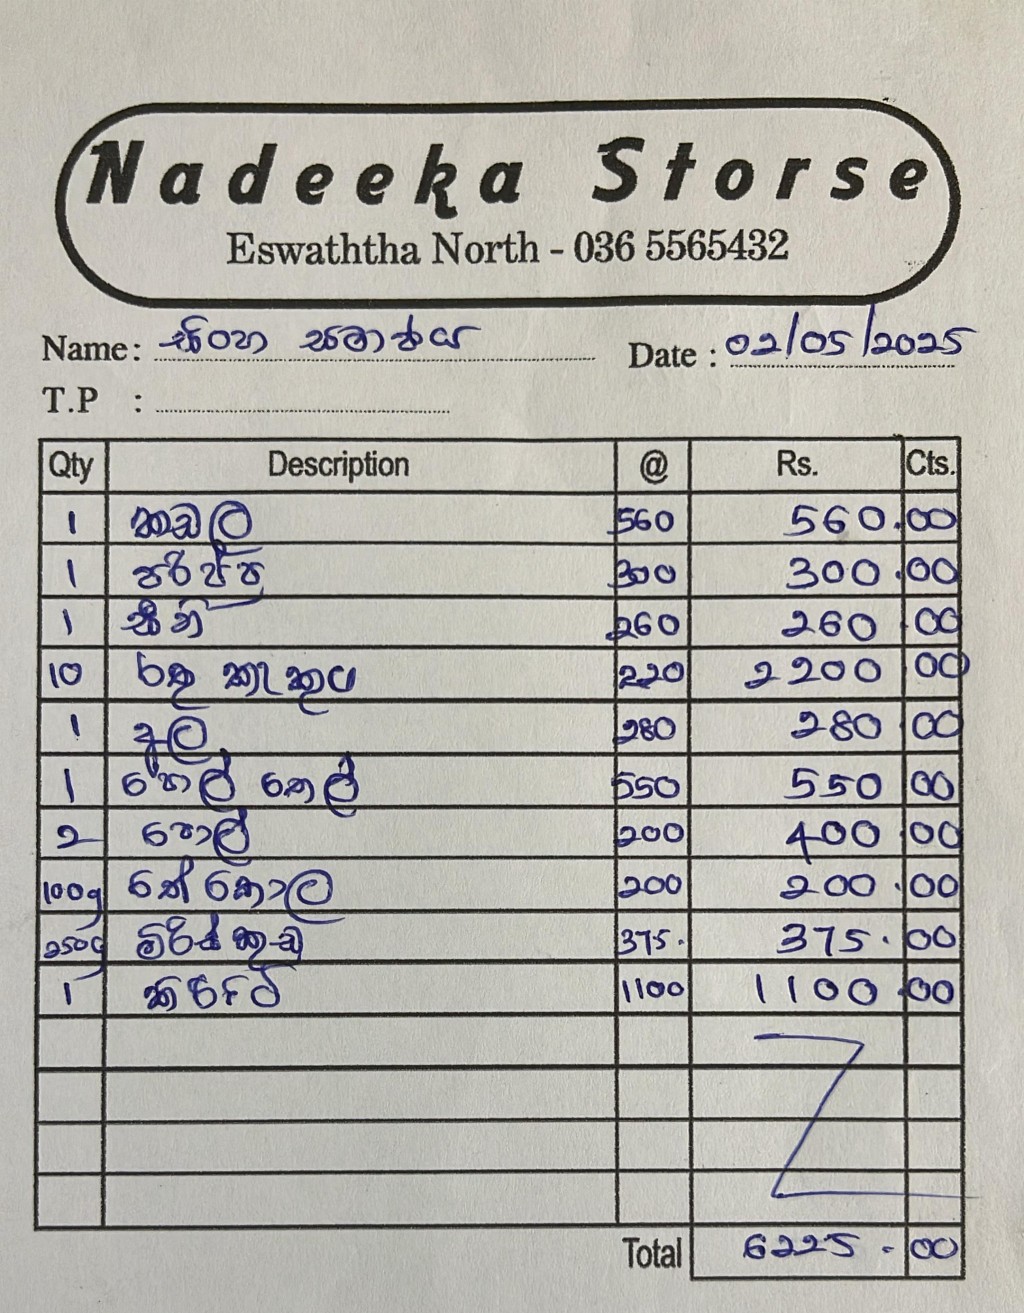 Nadeeka Storse
Eswaththa North - 036 5565432
Name: සිංහ සමාජය Date : 02/05/2025
T.P :
Qty Description @ Rs. Cts.
1 කඩල 560 560.00
1 පරිප්පු 300 300.00
1 සීනි 260 260.00
10 රතු කැකුළු 220 2200 00
1 අල 280 280 00
1 පොල් තෙල් 550 550 00
2 පොල් 200 400.00
100g තේ කොල 200 200.00
250g මිරිස් කුඩු 375. 375.00
1 කිරිපිටි 1100 1100.00
Total 6225.00